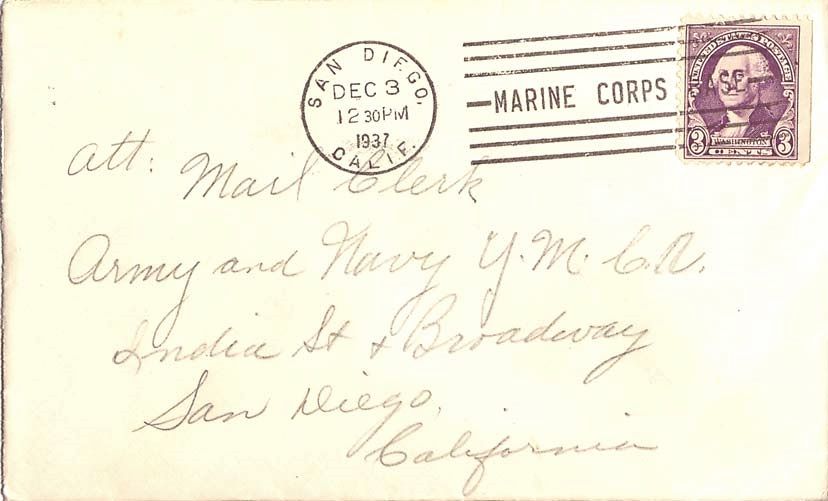 SAN DIEGO,
DEC 3
12 30 PM
1937
CALIF.
MARINE CORPS BASE
UNITED STATES POSTAGE
3 WASHINGTON 3
CENTS
Att: Mail Clerk
Army and Navy Y.M.C.A.
India St & Broadway
San Diego,
California